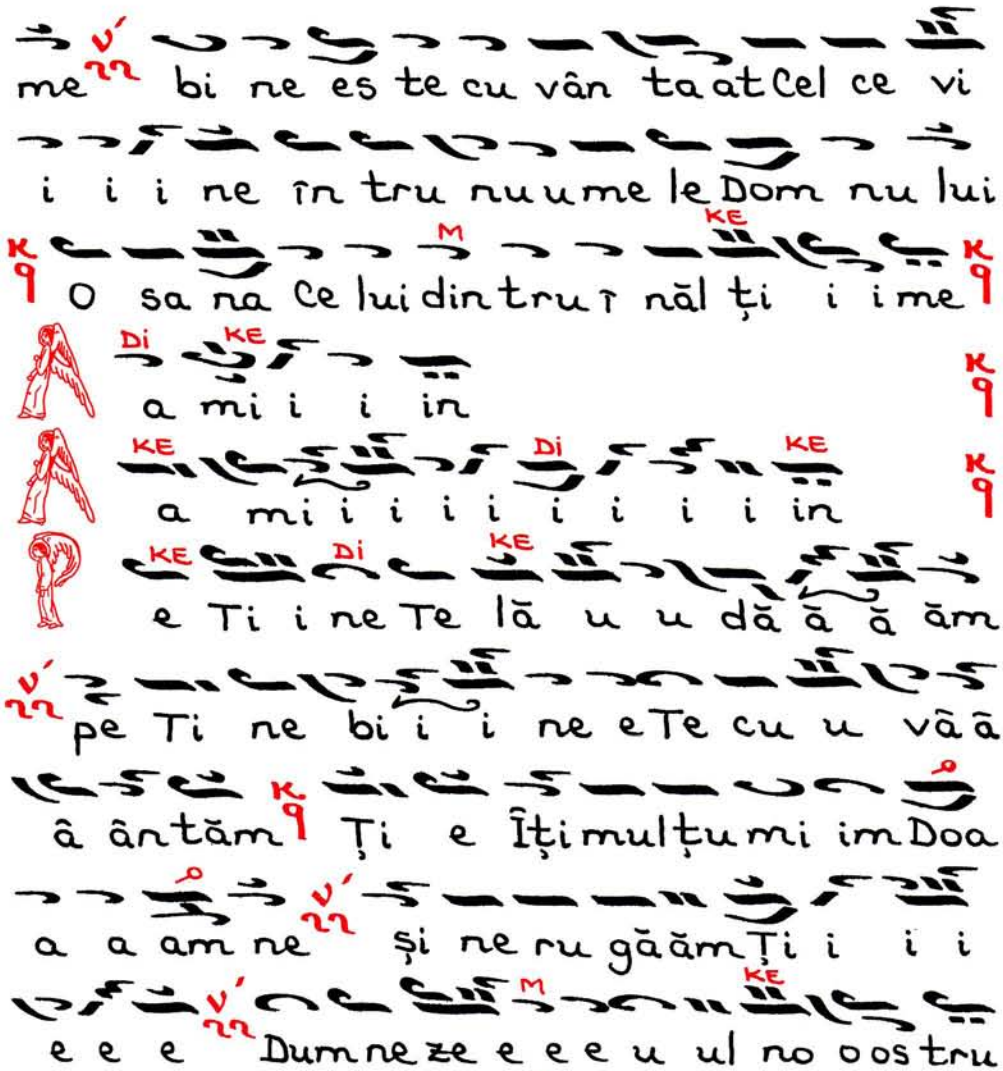 me bi ne es te cu vân ta at Cel ce vi
i i i ne în tru nu u me le Dom nu lui
M KE
O sa na Ce lui din tru î năl ți i i me
Di KE
A a mi i i in
KE Di KE
A a mi i i i i i i i i in
KE Di KE
P e Ti i ne Te lă u u dă ă ă ăm
pe Ti ne bi i i ne e Te cu u vâ ă
â ân tăm Ți e Îți mul țu mi im Doa
a a am ne și ne ru gă ăm Ți i i i
M KE
e e e Dum ne ze e e e u ul no o os tru